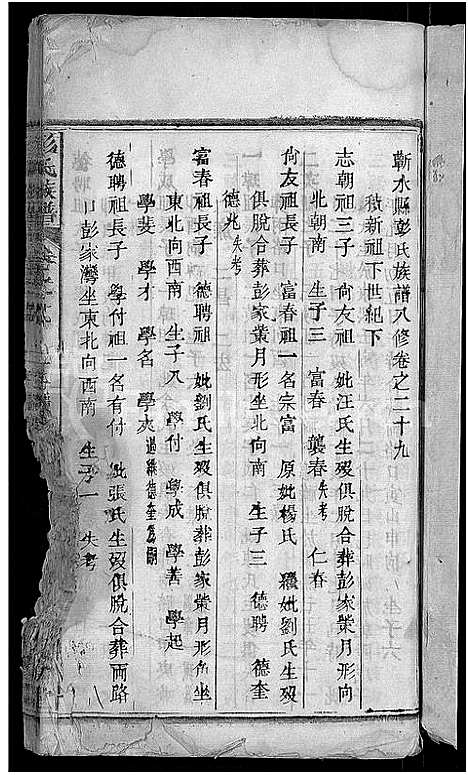 蘄水縣彭氏族譜八修卷之二十九
啟新祖下世紀下
志朝祖三子　尙友祖　妣汪氏生歿俱脫合葬彭家業月形向
北朝南　生子三　富春　襲春失考　仁春
尙友祖長子　富春祖一名宗富　原妣楊氏　繼妣劉氏生歿
俱脫合葬彭家業月形坐北向南　生子三　德聘　德奎
德兆失考
富春祖長子　德聘祖　妣劉氏生歿俱脫葬彭家業月形㘴坐
東北向西南　生子八　學付　學成　學善　學起
學斐　學才　學名　學夾過繼德奎爲嗣
德聘祖長子　學付祖一名有付　妣張氏生歿俱脫合葬両路
口彭家灣坐東北向西南　生子一　失考
彭氏族譜